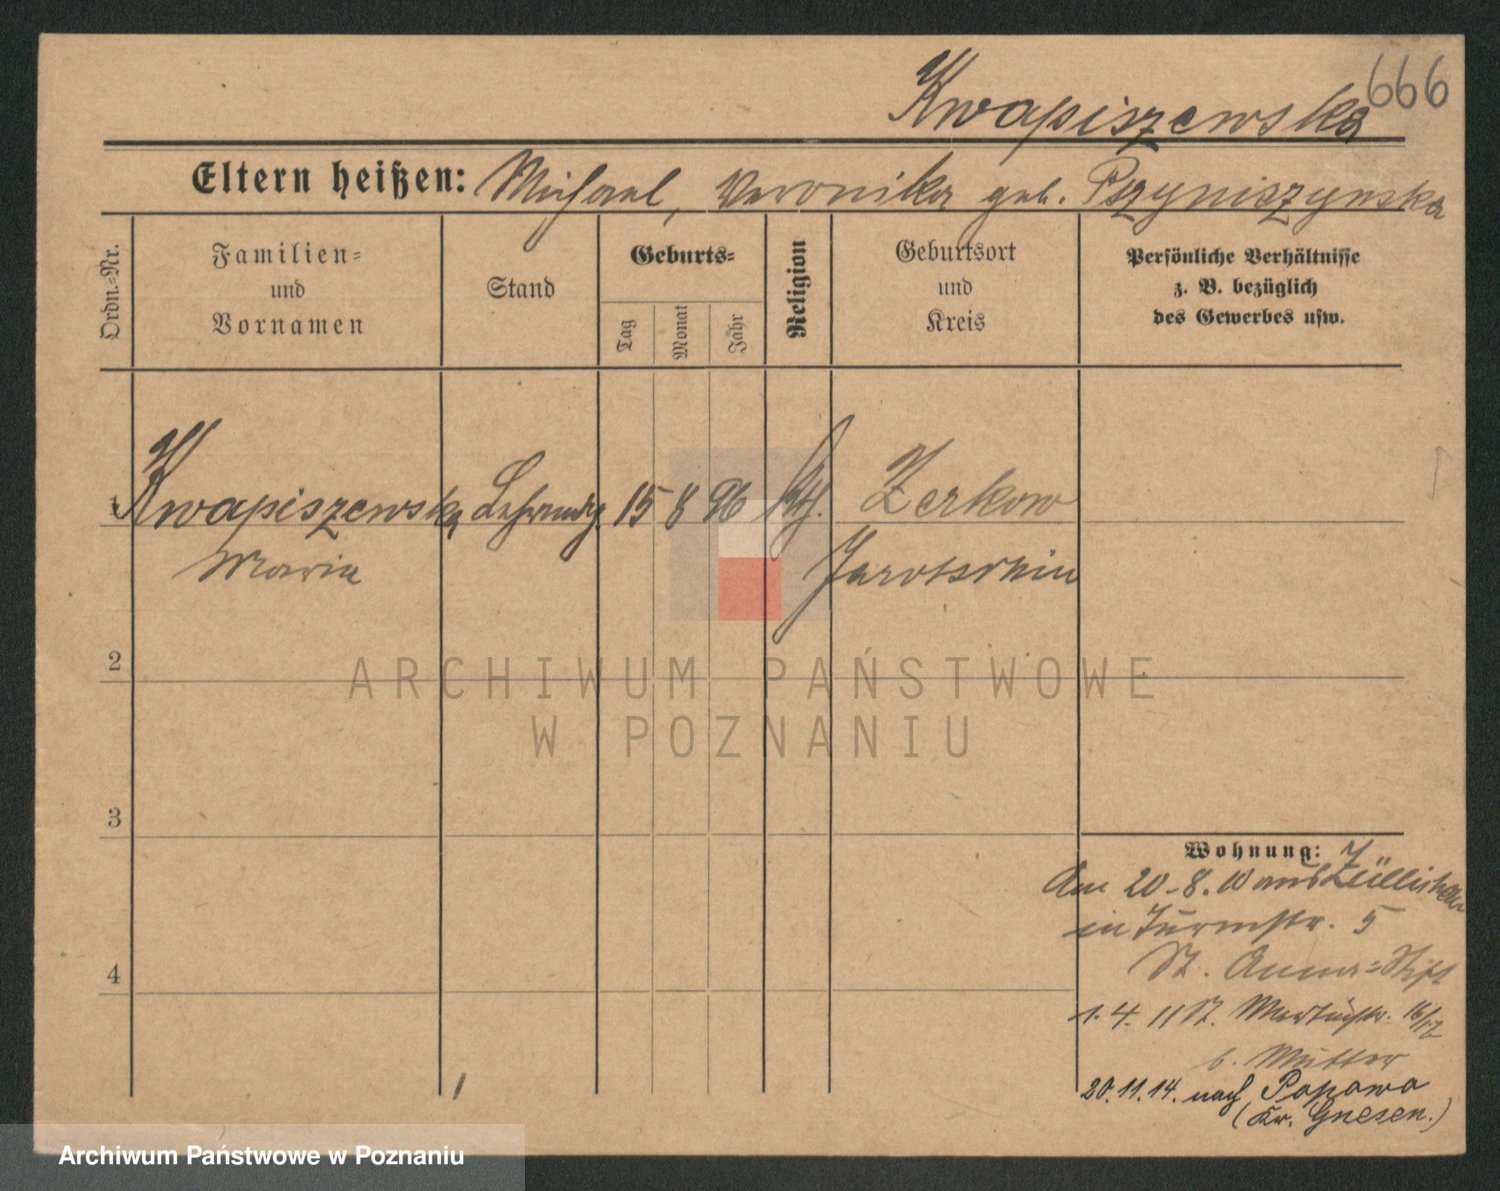 666
Kwapiszewska
Eltern heißen: Michael, Veronika geb. Pszyniszynska
Ordn.-Nr.
Familien-
und
Vornamen
Stand
Geburts-
Tag
Monat
Jahr
Religion
Geburtsort
und
Kreis
Persönliche Verhältnisse
z. B. bezüglich
des Gewerbes usw.
1 Kwapiszewska 15 8 96 kath. Zerkow
Maria Jarotschin
2
3
4
Wohnung:
Am 20-8.10 aus Züllichau
in Turmstr. 5
St. Anna-Stift
1.4.11 St. Martinstr. 16/17
b. Mutter
20.11.14. nach Popowo
(Kr. Gnesen.)
ARCHIWUM PAŃSTWOWE
W POZNANIU
Archiwum Państwowe w Poznaniu